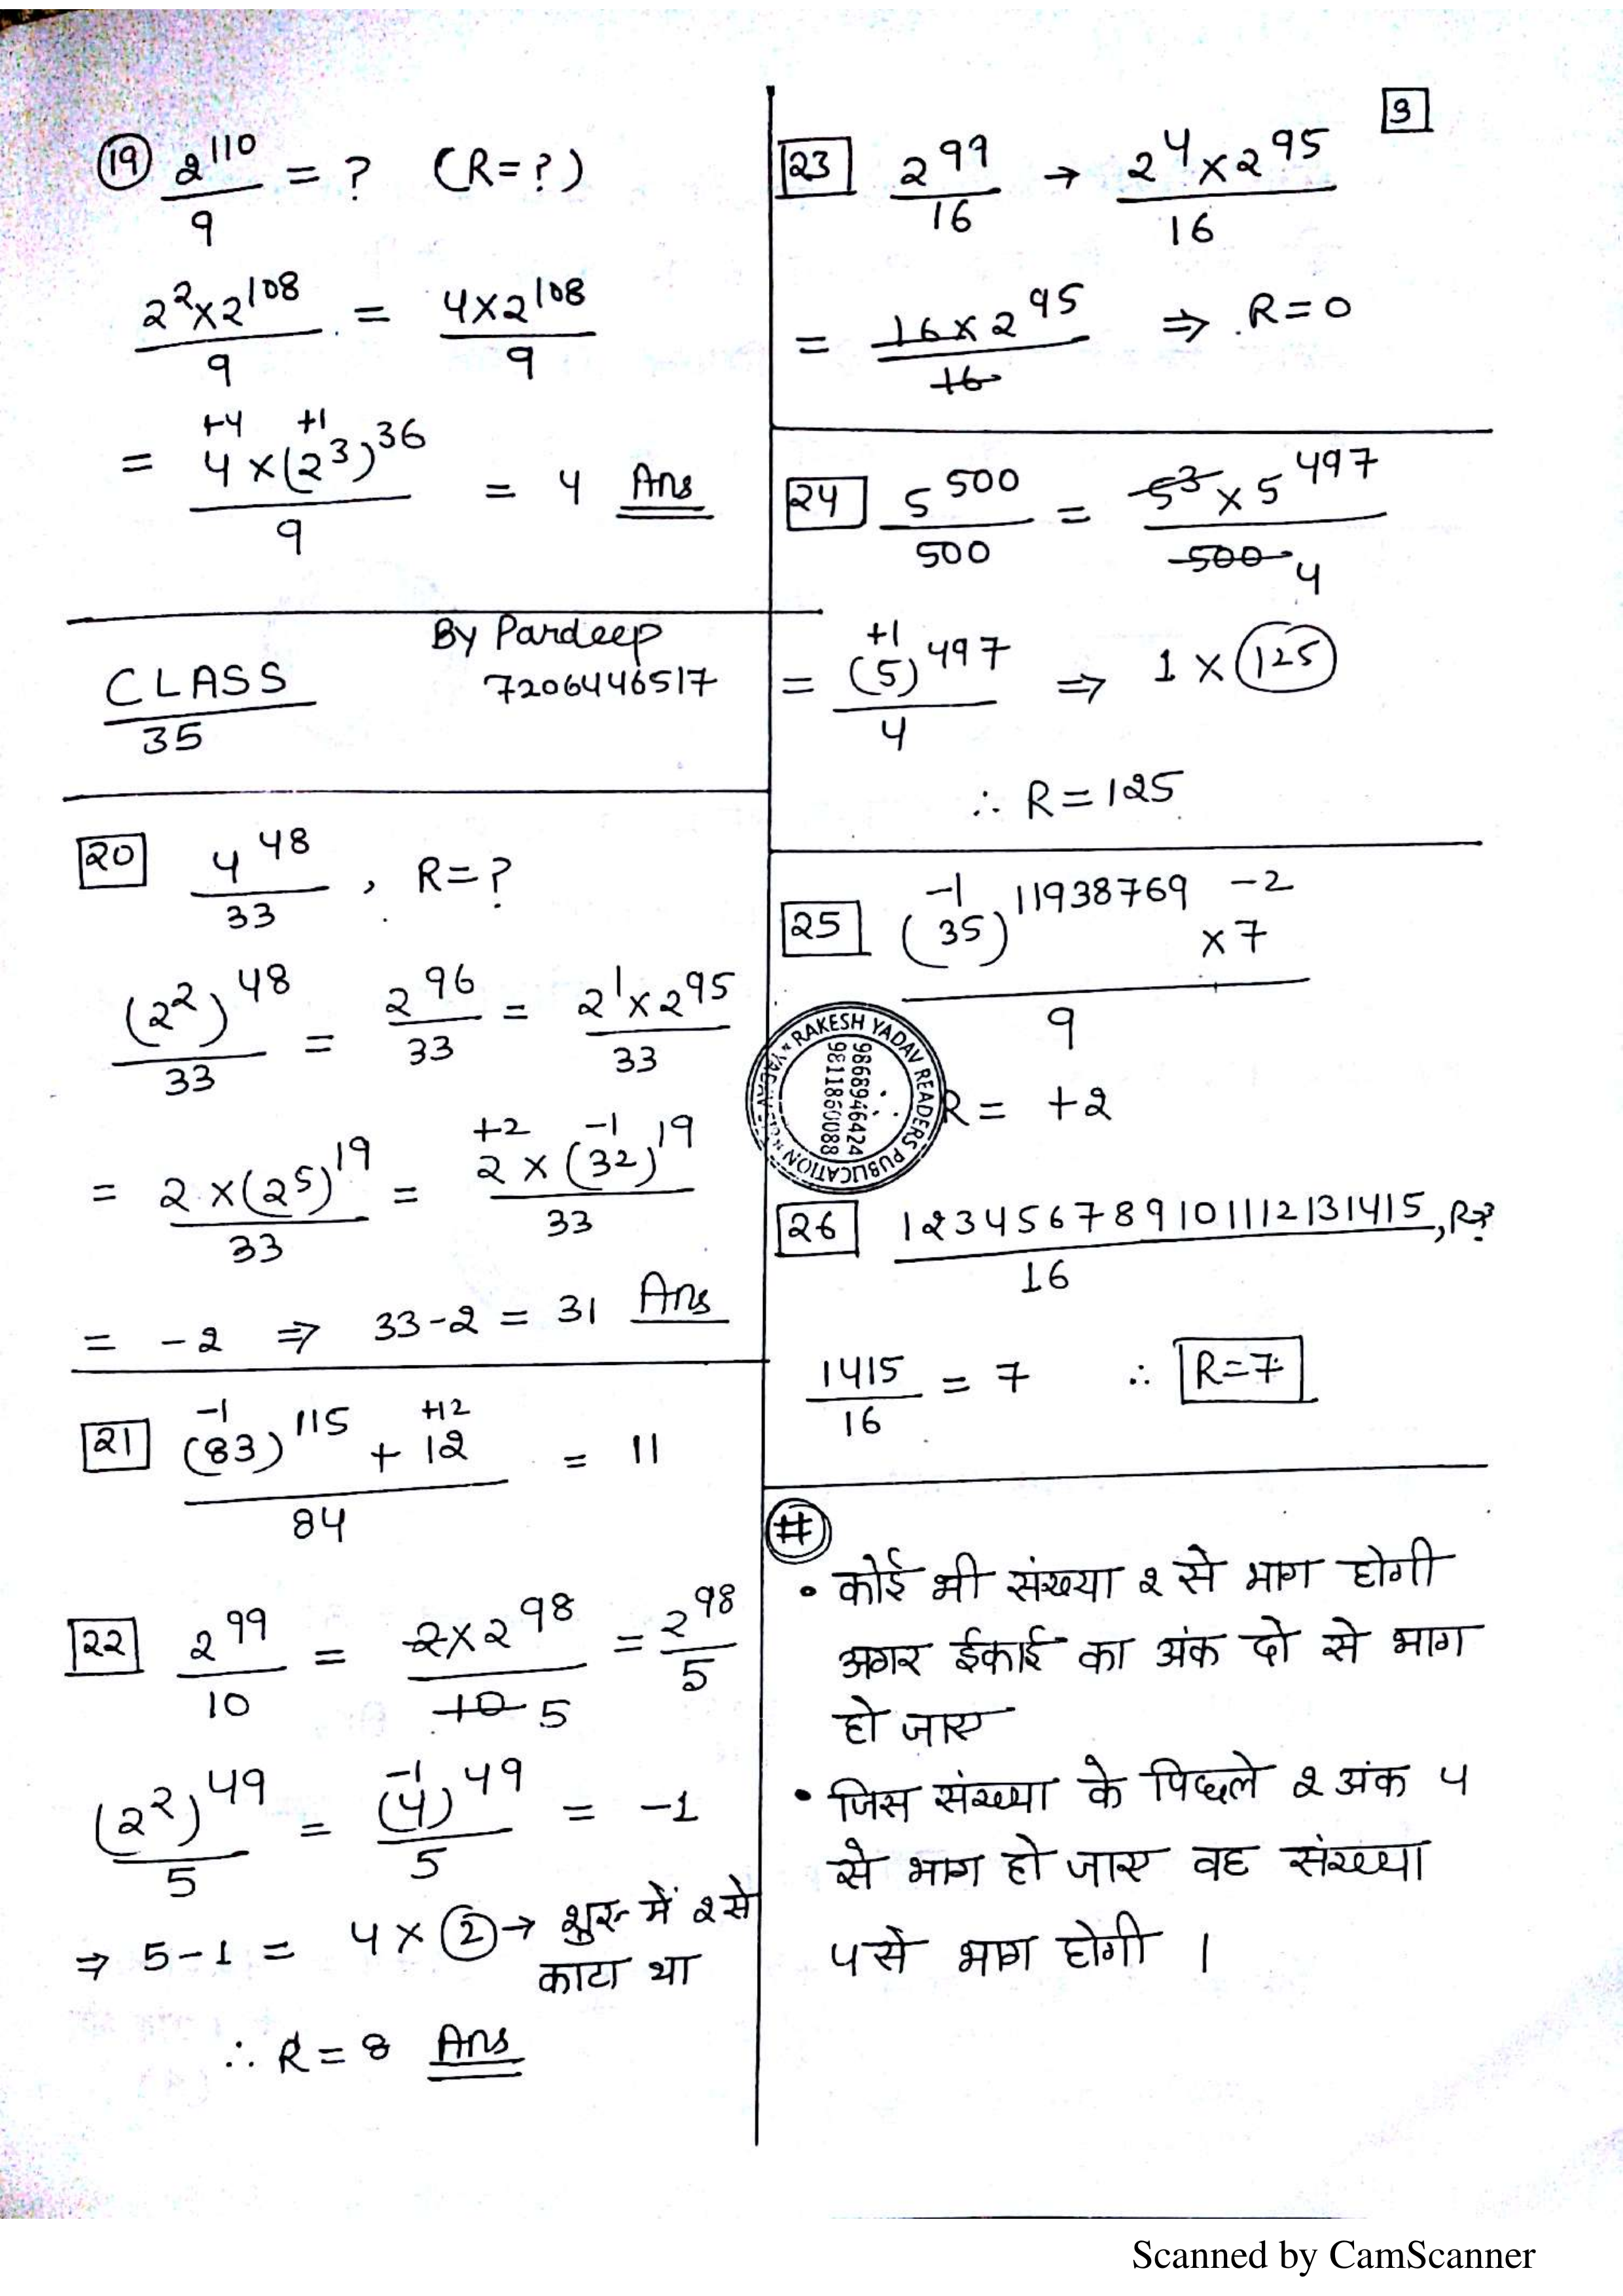 19 2^110/9 = ? (R=?)
2^2×2^108/9 = 4×2^108/9
+4 +1
= 4×(2^3)^36/9 = 4 Ans
By Pardeep
7206446517
CLASS
35
20 4^48/33 , R=?
(2^2)^48/33 = 2^96/33 = 2^1×2^95/33
+2 -1
= 2×(2^5)^19/33 = 2×(32)^19/33
= -2 ⇒ 33-2 = 31 Ans
-1 +12
21 (83)^115 + 12/84 = 11
22 2^99/10 = 2×2^98/10 5 = 2^98/5
-1
(2^2)^49/5 = (4)^49/5 = -1
⇒ 5-1 = 4×2 → शुरु में 2 से
काटा था
∴ R=8 Ans
3
23 2^99/16 → 2^4×2^95/16
= 16×2^95/16 ⇒ R=0
24 5^500/500 = 5^3×5^497/500 4
+1
= (5)^497/4 ⇒ 1×125
∴ R=125
-1 -2
25 (35)^11938769 ×7/9
RAKESH YADAV READERS PUBLICATION
9868946424
9811860088
R= +2
26 123456789101112131415/16 ,R=?
1415/16 = 7 ∴ R=7
#
• कोई भी संख्या 2 से भाग होगी
अगर ईकाई का अंक दो से भाग
हो जाए
• जिस संख्या के पिछले 2 अंक 4
से भाग हो जाए वह संख्या
4 से भाग होगी ।
Scanned by CamScanner